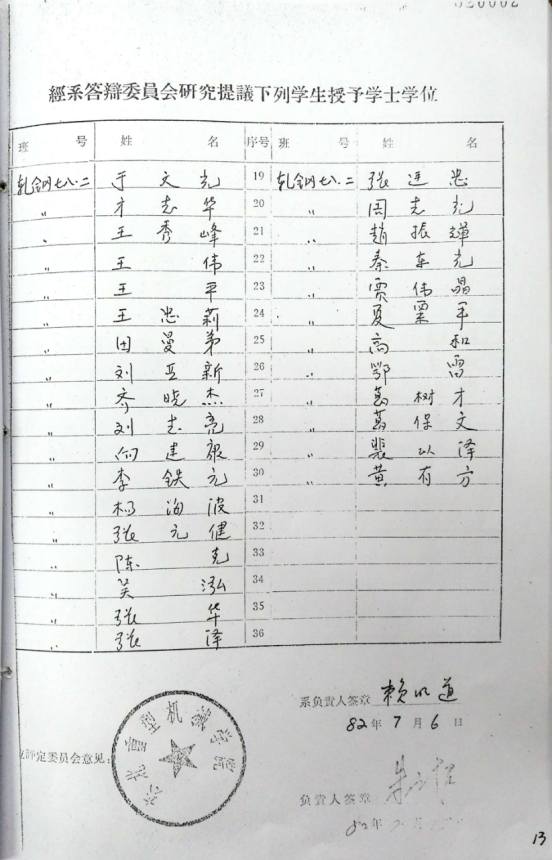 經系答辯委員会研究提議下列学生授予学士学位
班 号 姓 名 序号 班 号 姓 名
轧钢七八.二 于文光 19 轧钢七八.二 張连忠
〃 才志华 20 〃 周志光
〃 王秀峰 21 〃 趙振輝
〃 王伟 22 〃 秦车光
〃 王平 23 〃 贾伟晶
〃 王忠莉 24 〃 夏粟军
〃 田曼弟 25 〃 高和
〃 刘亚新 26 〃 鄂雷
〃 齐晓杰 27 〃 葛树才
〃 刘志亮 28 〃 葛保文
〃 向建毅 29 〃 裴以泽
〃 李铁元 30 〃 黄有方
〃 杨海波 31
〃 張元健 32
〃 陈克 33
〃 吴泓 34
〃 張华 35
〃 張泽 36
系负責人签章 赖以道
82年7月6日
評定委员会意見:
东北重型机械学院
负責人签章
82年 月
13